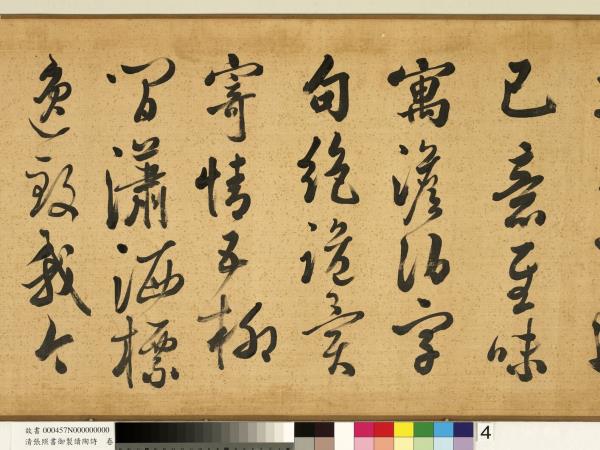 已意至味
寓澹泊字
句絶詭異
寄情五柳
間瀟洒標
逸致我今
故書 000457N000000000
清張照書御製讀陶詩
4